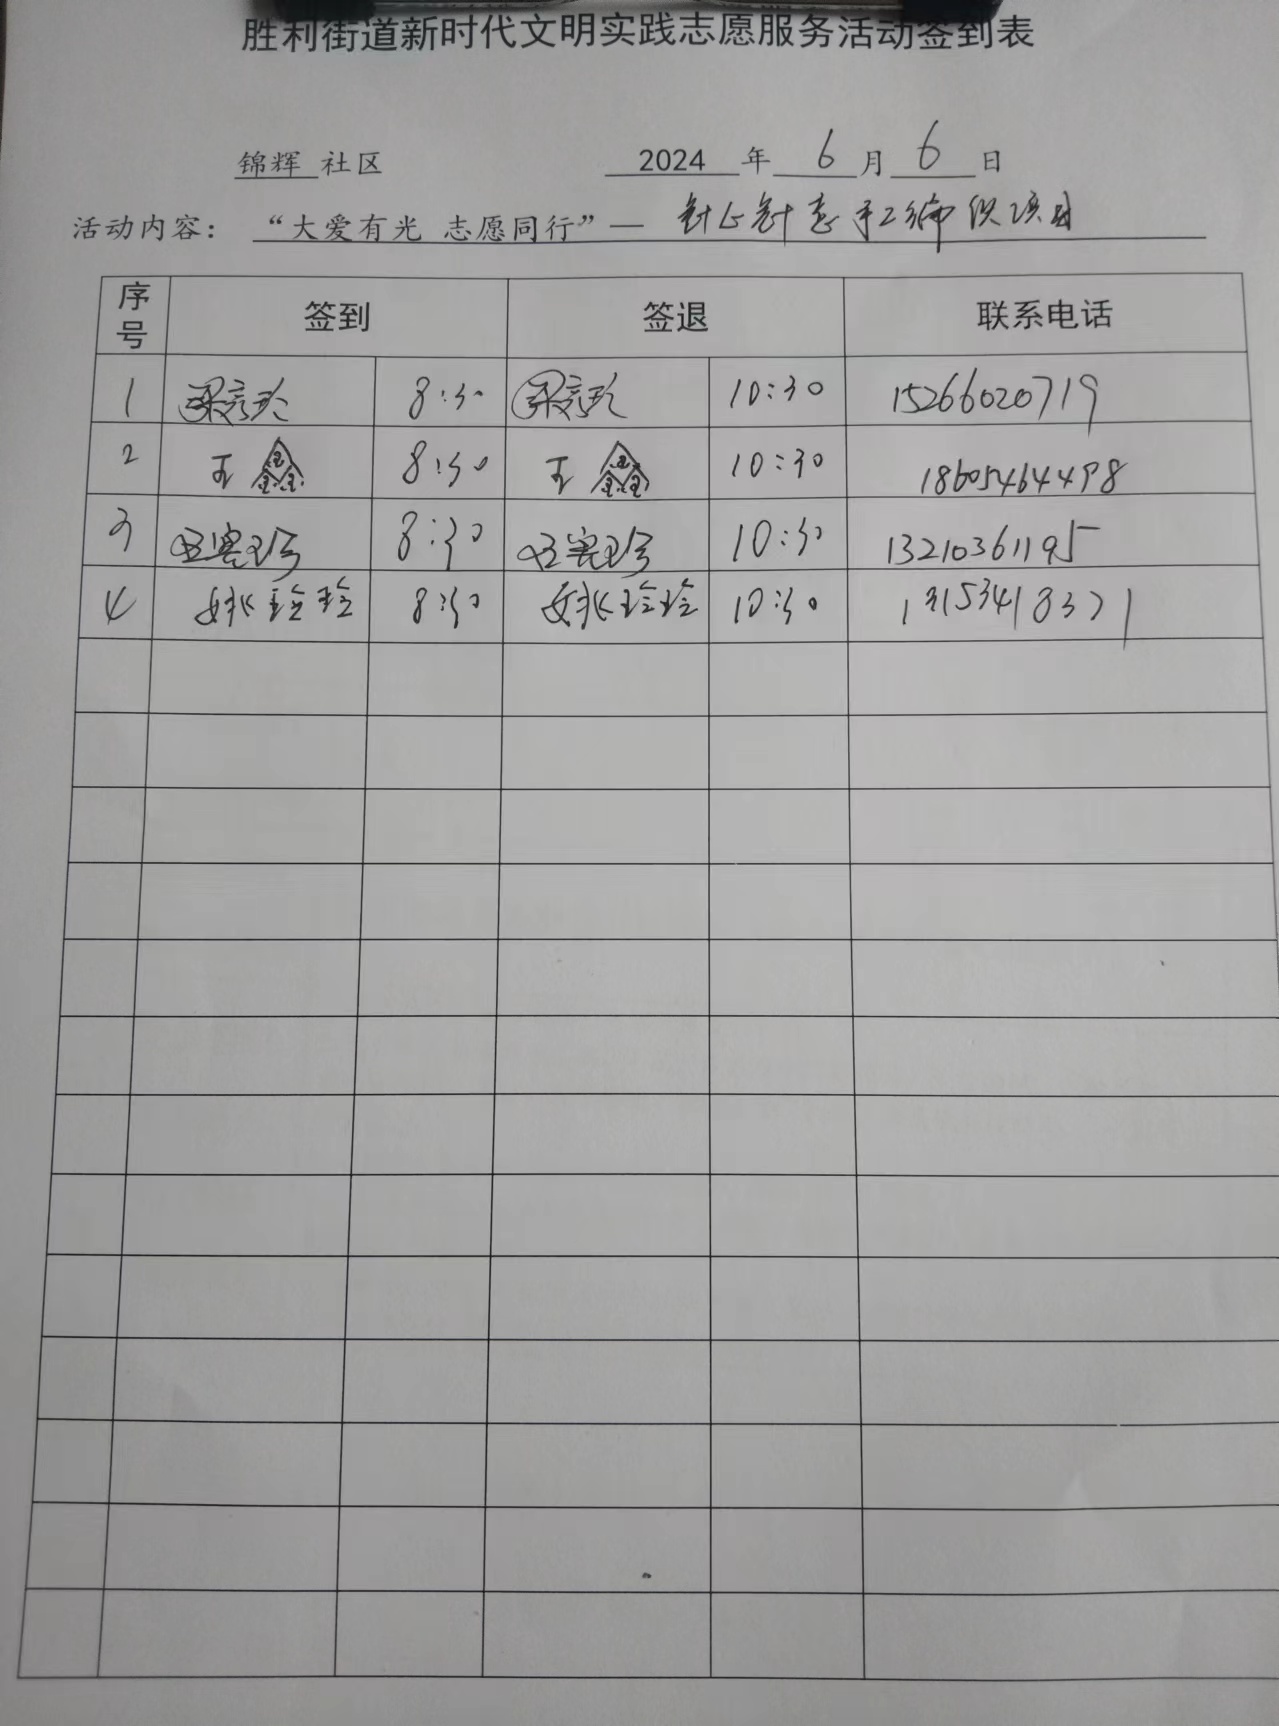 胜利街道新时代文明实践志愿服务活动签到表
锦辉 社区 2024 年 6 月 6 日
活动内容：“大爱有光 志愿同行”— 手工编织项目
序号 签到 签退 联系电话
1 8:30 10:30 15266020719
2 王鑫 8:30 10:30 王鑫 18605464498
3 8:30 10:30 13210361195
4 姚玲玲 8:30 姚玲玲 10:30